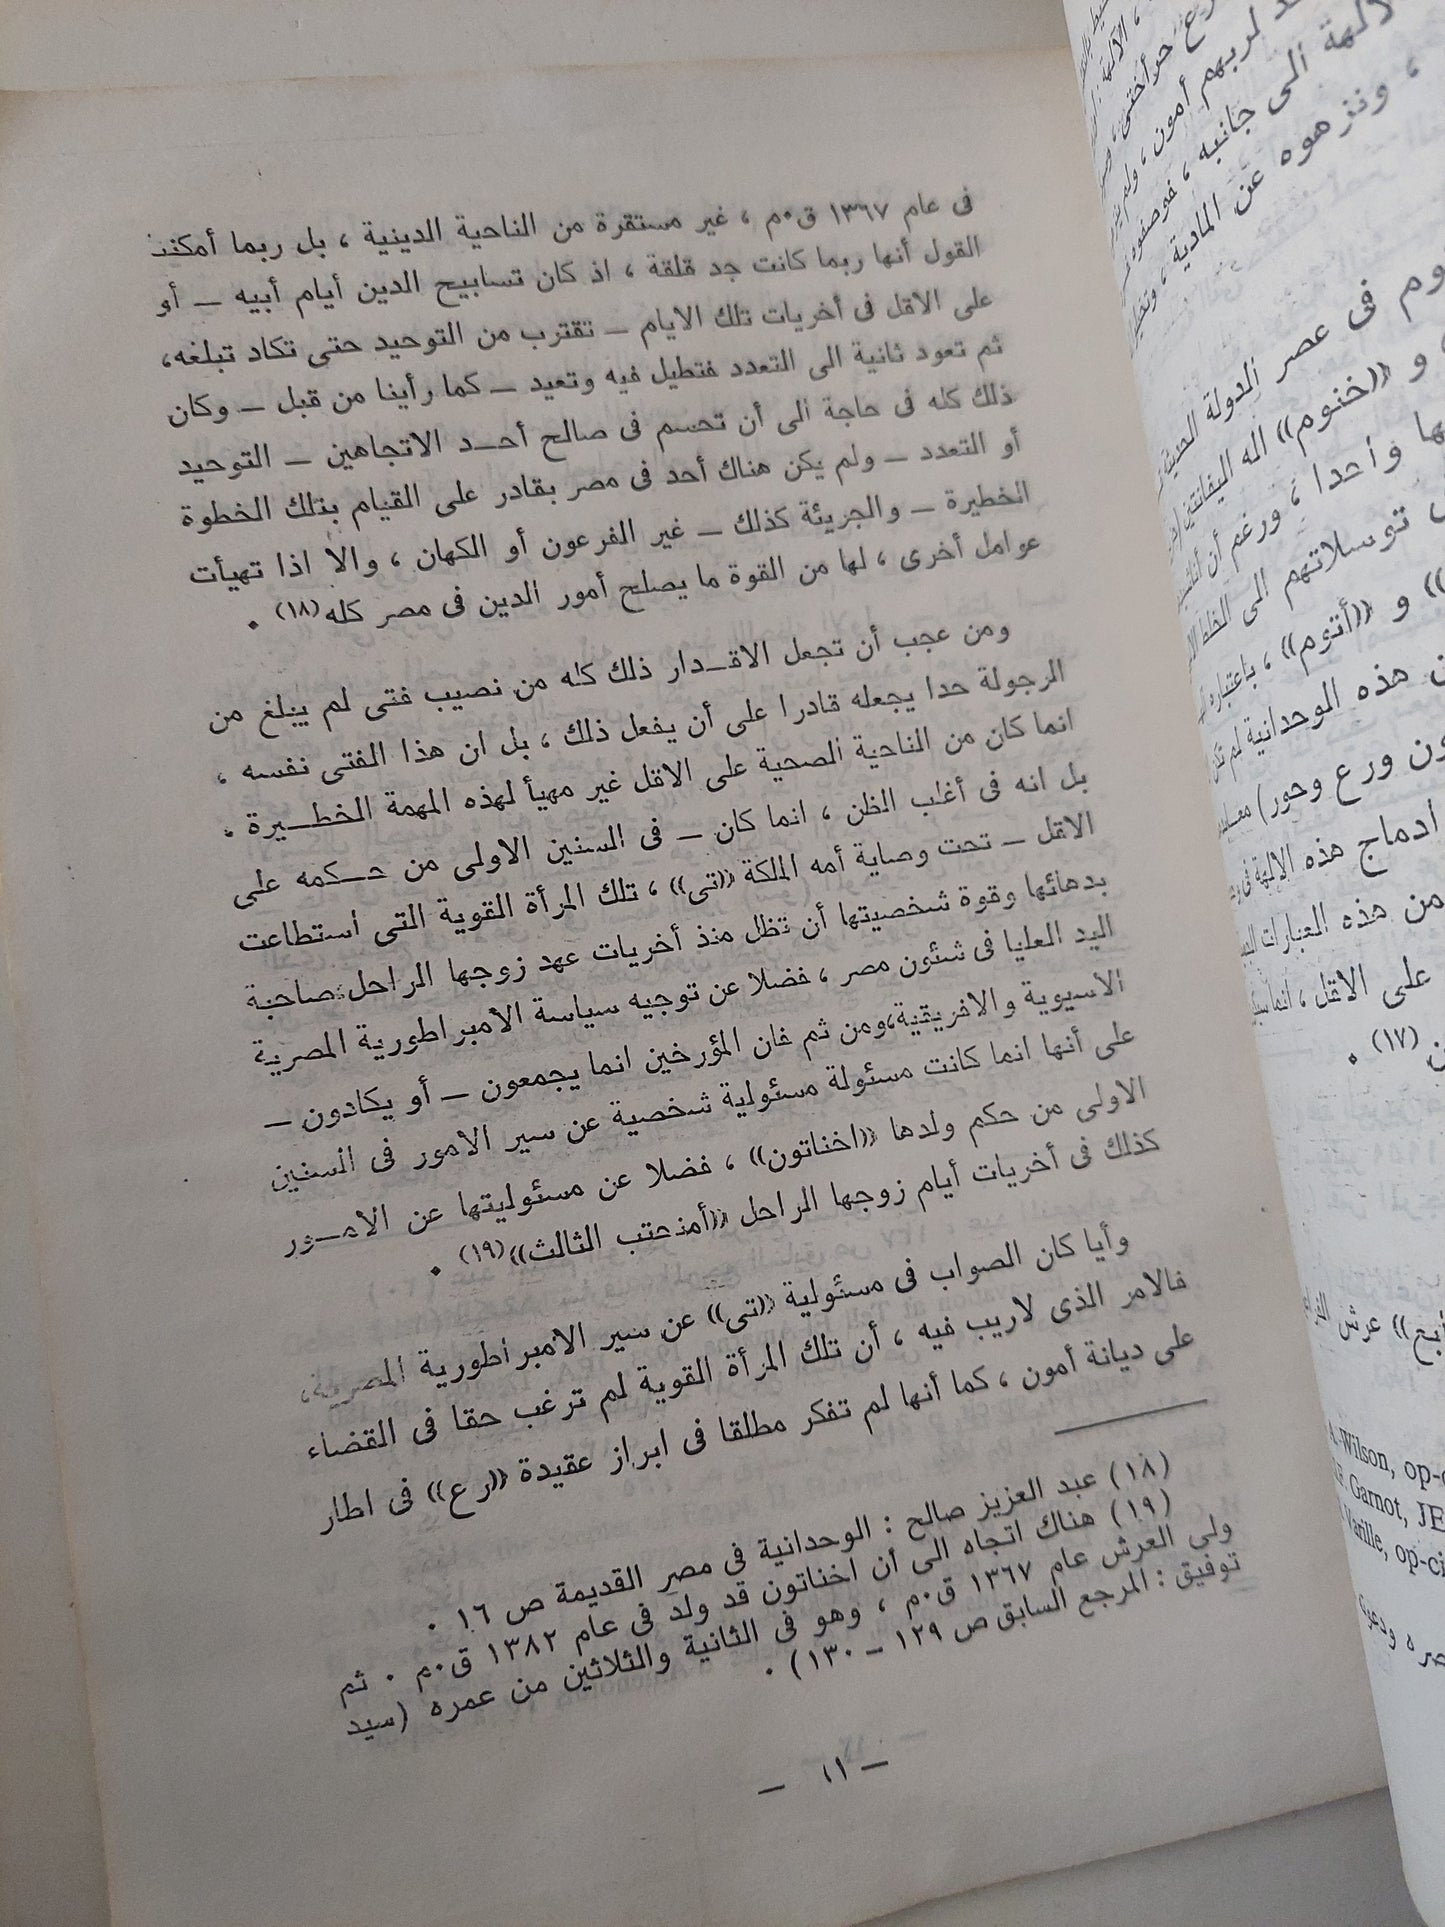 فى عام ١٣٦٧ ق٠م ، غير مستقرة من الناحية الدينية ، بل ربما أمكننا
القول أنها ربما كانت جد قلقة ، اذ كان تسابيح الدين أيام أبيه ــ أو
على الاقل فى أخريات تلك الايام ــ تقترب من التوحيد حتى تكاد تبلغه،
ثم تعود ثانية الى التعدد فتطيل فيه وتعيد ــ كما رأينا من قبل ــ وكان
ذلك كله فى حاجة الى أن تحسم فى صالح أحــد الاتجاهين ــ التوحيد
أو التعدد ــ ولم يكن هناك أحد فى مصر بقادر على القيام بتلك الخطوة
الخطيرة ــ والجريئة كذلك ــ غير الفرعون أو الكهان ، والا اذا تهيأت
عوامل أخرى ، لها من القوة ما يصلح أمور الدين فى مصر كله(١٨) ٠
ومن عجب أن تجعل الاقــدار ذلك كله من نصيب فتى لم يبلغ من
الرجولة حدا يجعله قادرا على أن يفعل ذلك ، بل ان هذا الفتى نفسه ،
انما كان من الناحية الصحية على الاقل غير مهيأ لهذه المهمة الخطــيرة ٠
بل انه فى أغلب الظن ، انما كان ــ فى السنين الاولى من حــكمه على
الاقل ــ تحت وصاية أمه الملكة «تى» ، تلك المرأة القوية التى استطاعت
بدهائها وقوة شخصيتها أن تظل منذ أخريات عهد زوجها الراحل صاحبة
اليد العليا فى شئون مصر ، فضلا عن توجيه سياسة الامبراطورية المصرية
الاسيوية والافريقية،ومن ثم فان المؤرخين انما يجمعون ــ أو يكادون ــ
على أنها انما كانت مسئولة مسئولية شخصية عن سير الامور فى السنين
الاولى من حكم ولدها «اخناتون» ، فضلا عن مسئوليتها عن الامــور
كذلك فى أخريات أيام زوجها الراحل «أمنحتب الثالث»(١٩) ٠
وأيا كان الصواب فى مسئولية «تى» عن سير الامبراطورية المصرية،
فالامر الذى لاريب فيه ، أن تلك المرأة القوية لم ترغب حقا فى القضاء
على ديانة أمون ، كما أنها لم تفكر مطلقا فى ابراز عقيدة «رع» فى اطار
(١٨) عبد العزيز صالح : الوحدانية فى مصر القديمة ص ١٦ ٠
(١٩) هناك اتجاه الى أن اخناتون قد ولد فى عام ١٣٨٢ ق٠م ٠ ثم
ولى العرش عام ١٣٦٧ ق٠م ، وهو فى الثانية والثلاثين من عمره (سيد
توفيق : المرجع السابق ص ١٢٩ ــ ١٣٠) ٠
ــ ١١ ــ
حر أختى
لربهم أمون ، ولم
الى جانبه ، فوصفوه
، ونزهوه عن المادية ،
وم فى عصر الدولة الحديثة
و «خنوم» اله اليفانتين
ها واحدا ، ورغم أن
توسلاتهم الى
» و «أتوم» ، باعتباره
ن هذه الوحدانية لم تكن
ون ورع وحور)
ادماج هذه الالهة فى
من هذه العبارات
على الاقل ، انما
(١٧) ٠
» عرش
A. Wilson, op-c
Garnot, JE
Varille, op-ci